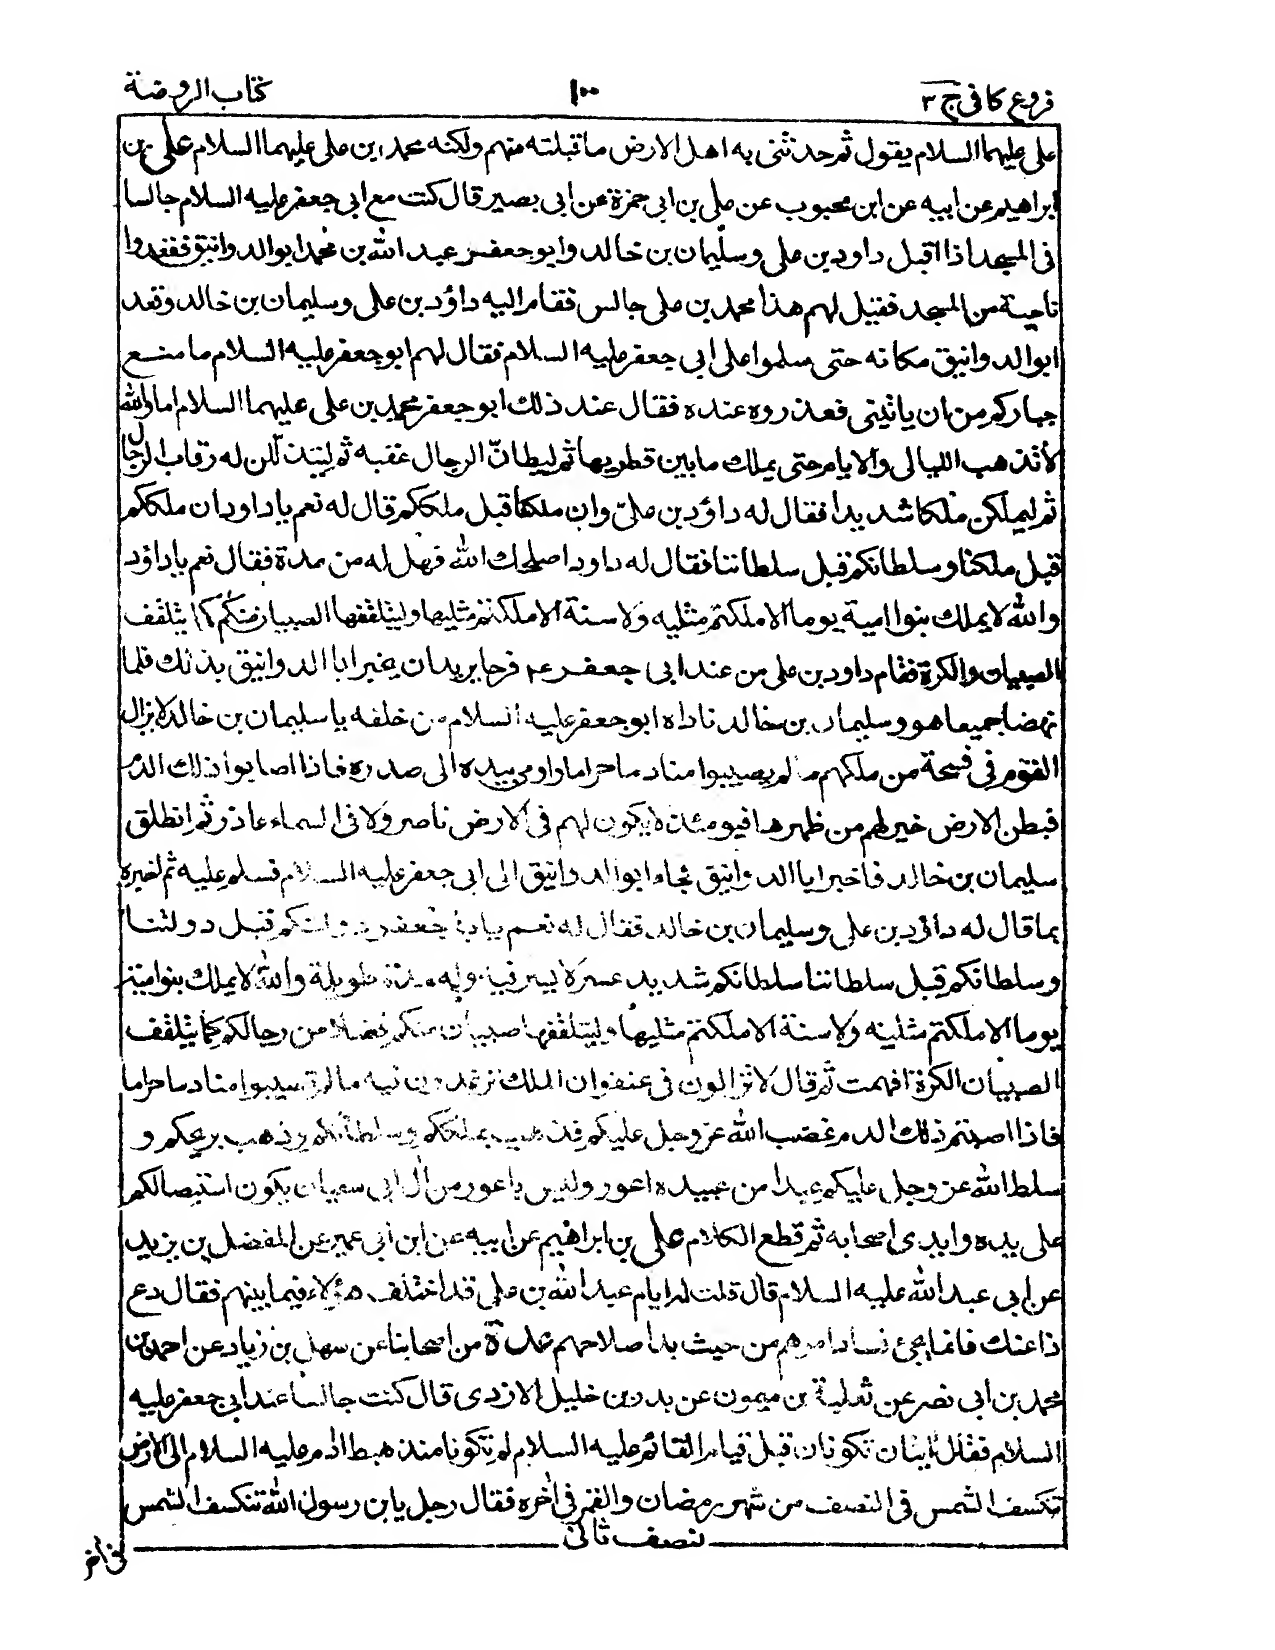 فروع كافى ج ٣
١٠٠
كتاب الروضة
على عليهما السلام يقول ثم حدثنى به اهل الارض ما قبلته منهم ولكنه محمد ابن على عليهما السلام على بن
ابراهيم عن ابيه عن ابن محبوب عن على بن ابى حمزة عن ابى بصير قال كنت مع ابى جعفر عليه السلام جالسا
فى المسجد اذا اقبل داود بن على وسليمان بن خالد وابو جعفر عبد الله بن محمد ابو الدوانيق فقعدوا
ناحية من المسجد فقيل لهم هذا محمد بن على جالس فقام اليه داؤد بن على وسليمان بن خالد وقعد
ابو الدوانيق مكانه حتى سلموا على ابى جعفر عليه السلام فقال لهم ابو جعفر عليه السلام ما منع
جباركم من ان ياتينى فعذروه عنده فقال عند ذلك ابو جعفر محمد بن على عليهما السلام اما والله
لا تذهب الليالى والايام حتى يملك ما بين قطريها ثم ليطان الرجال عقبه ثم ليتذللن له رقاب الرجال
ثم ليملكن ملكا شديدا فقال له داؤد بن على وان ملكنا قبل ملككم قال له نعم يا داود ان ملككم
قبل ملكنا وسلطانكم قبل سلطاننا فقال له داود اصلحك الله فهل له من مدة فقال نعم يا داؤد
والله لا يملك بنوا امية يوما الا ملكتم مثليه ولا سنة الا ملكتم مثليها وليتلقفها الصبيان منكم كما يتلقف
الصبيان والكرة فقام داود بن على من عند ابى جعفر ع‍ فرحا يريد ان يخبر ابا الدوانيق بذلك فلما
نهضا جميعا هو وسليمان بن خالد ناداه ابو جعفر عليه السلام من خلفه يا سليمان بن خالد لا يزال
القوم فى فسحة من ملكهم ما لم يصيبوا منا دما حراما واومى بيده الى صدره فاذا اصابوا ذلك الدم
فبطن الارض خير لهم من ظهرها فيومئذ لا يكون لهم فى الارض ناصر ولا فى السماء عاذر ثم انطلق
سليمان بن خالد فاخبر ابا الدوانيق فجاء ابو الدوانيق الى ابى جعفر عليه السلام فسلم عليه ثم اخبره
بما قال له داؤد بن على وسليمان بن خالد فقال له نعم يا ابا جعفر دولتكم قبل دولتنا
وسلطانكم قبل سلطاننا سلطانكم شديد عسر لا يسر فيه وله مدة طويلة والله لا يملك بنوا امية
يوما الا ملكتم مثليه ولا سنة الا ملكتم مثليها وليتلقفها صبيان منكم فضلا من رجالكم كما يتلقف
الصبيان الكرة افهمت ثم قال لا تزالون فى عنفوان الملك ترغدون فيه ما لم تصيبوا منا دما حراما
فاذا اصبتم ذلك الدم غضب الله عز وجل عليكم فذهب بملككم وسلطانكم وذهب بريحكم و
سلط الله عز وجل عليكم عبدا من عبيده اعور وليس باعور من ال ابى سفيان يكون استيصالكم
على يده وايدى اصحابه ثم قطع الكلام على بن ابراهيم عن ابيه عن ابن ابى عمير عن المفضل بن يزيد
عن ابى عبد الله عليه السلام قال قلت له ايام عبد الله بن على قد اختلف هؤلاء فيما بينهم فقال دع
ذا عنك فانما يجئ فساد امرهم من حيث بدا صلاحهم عدة من اصحابنا عن سهل بن زياد عن احمد بن
محمد بن ابى نصر عن ثعلبة بن ميمون عن بدر بن خليل الازدى قال كنت جالسا عند ابى جعفر عليه
السلام فقال ايتان تكونان قبل قيام القائم عليه السلام لم تكونا منذ هبط ادم عليه السلام الى الارض
تكسف الشمس فى النصف من شهر رمضان والقمر فى اخره فقال رجل يا بن رسول الله تنكسف الشمس
نصف ثانى
فى اخر